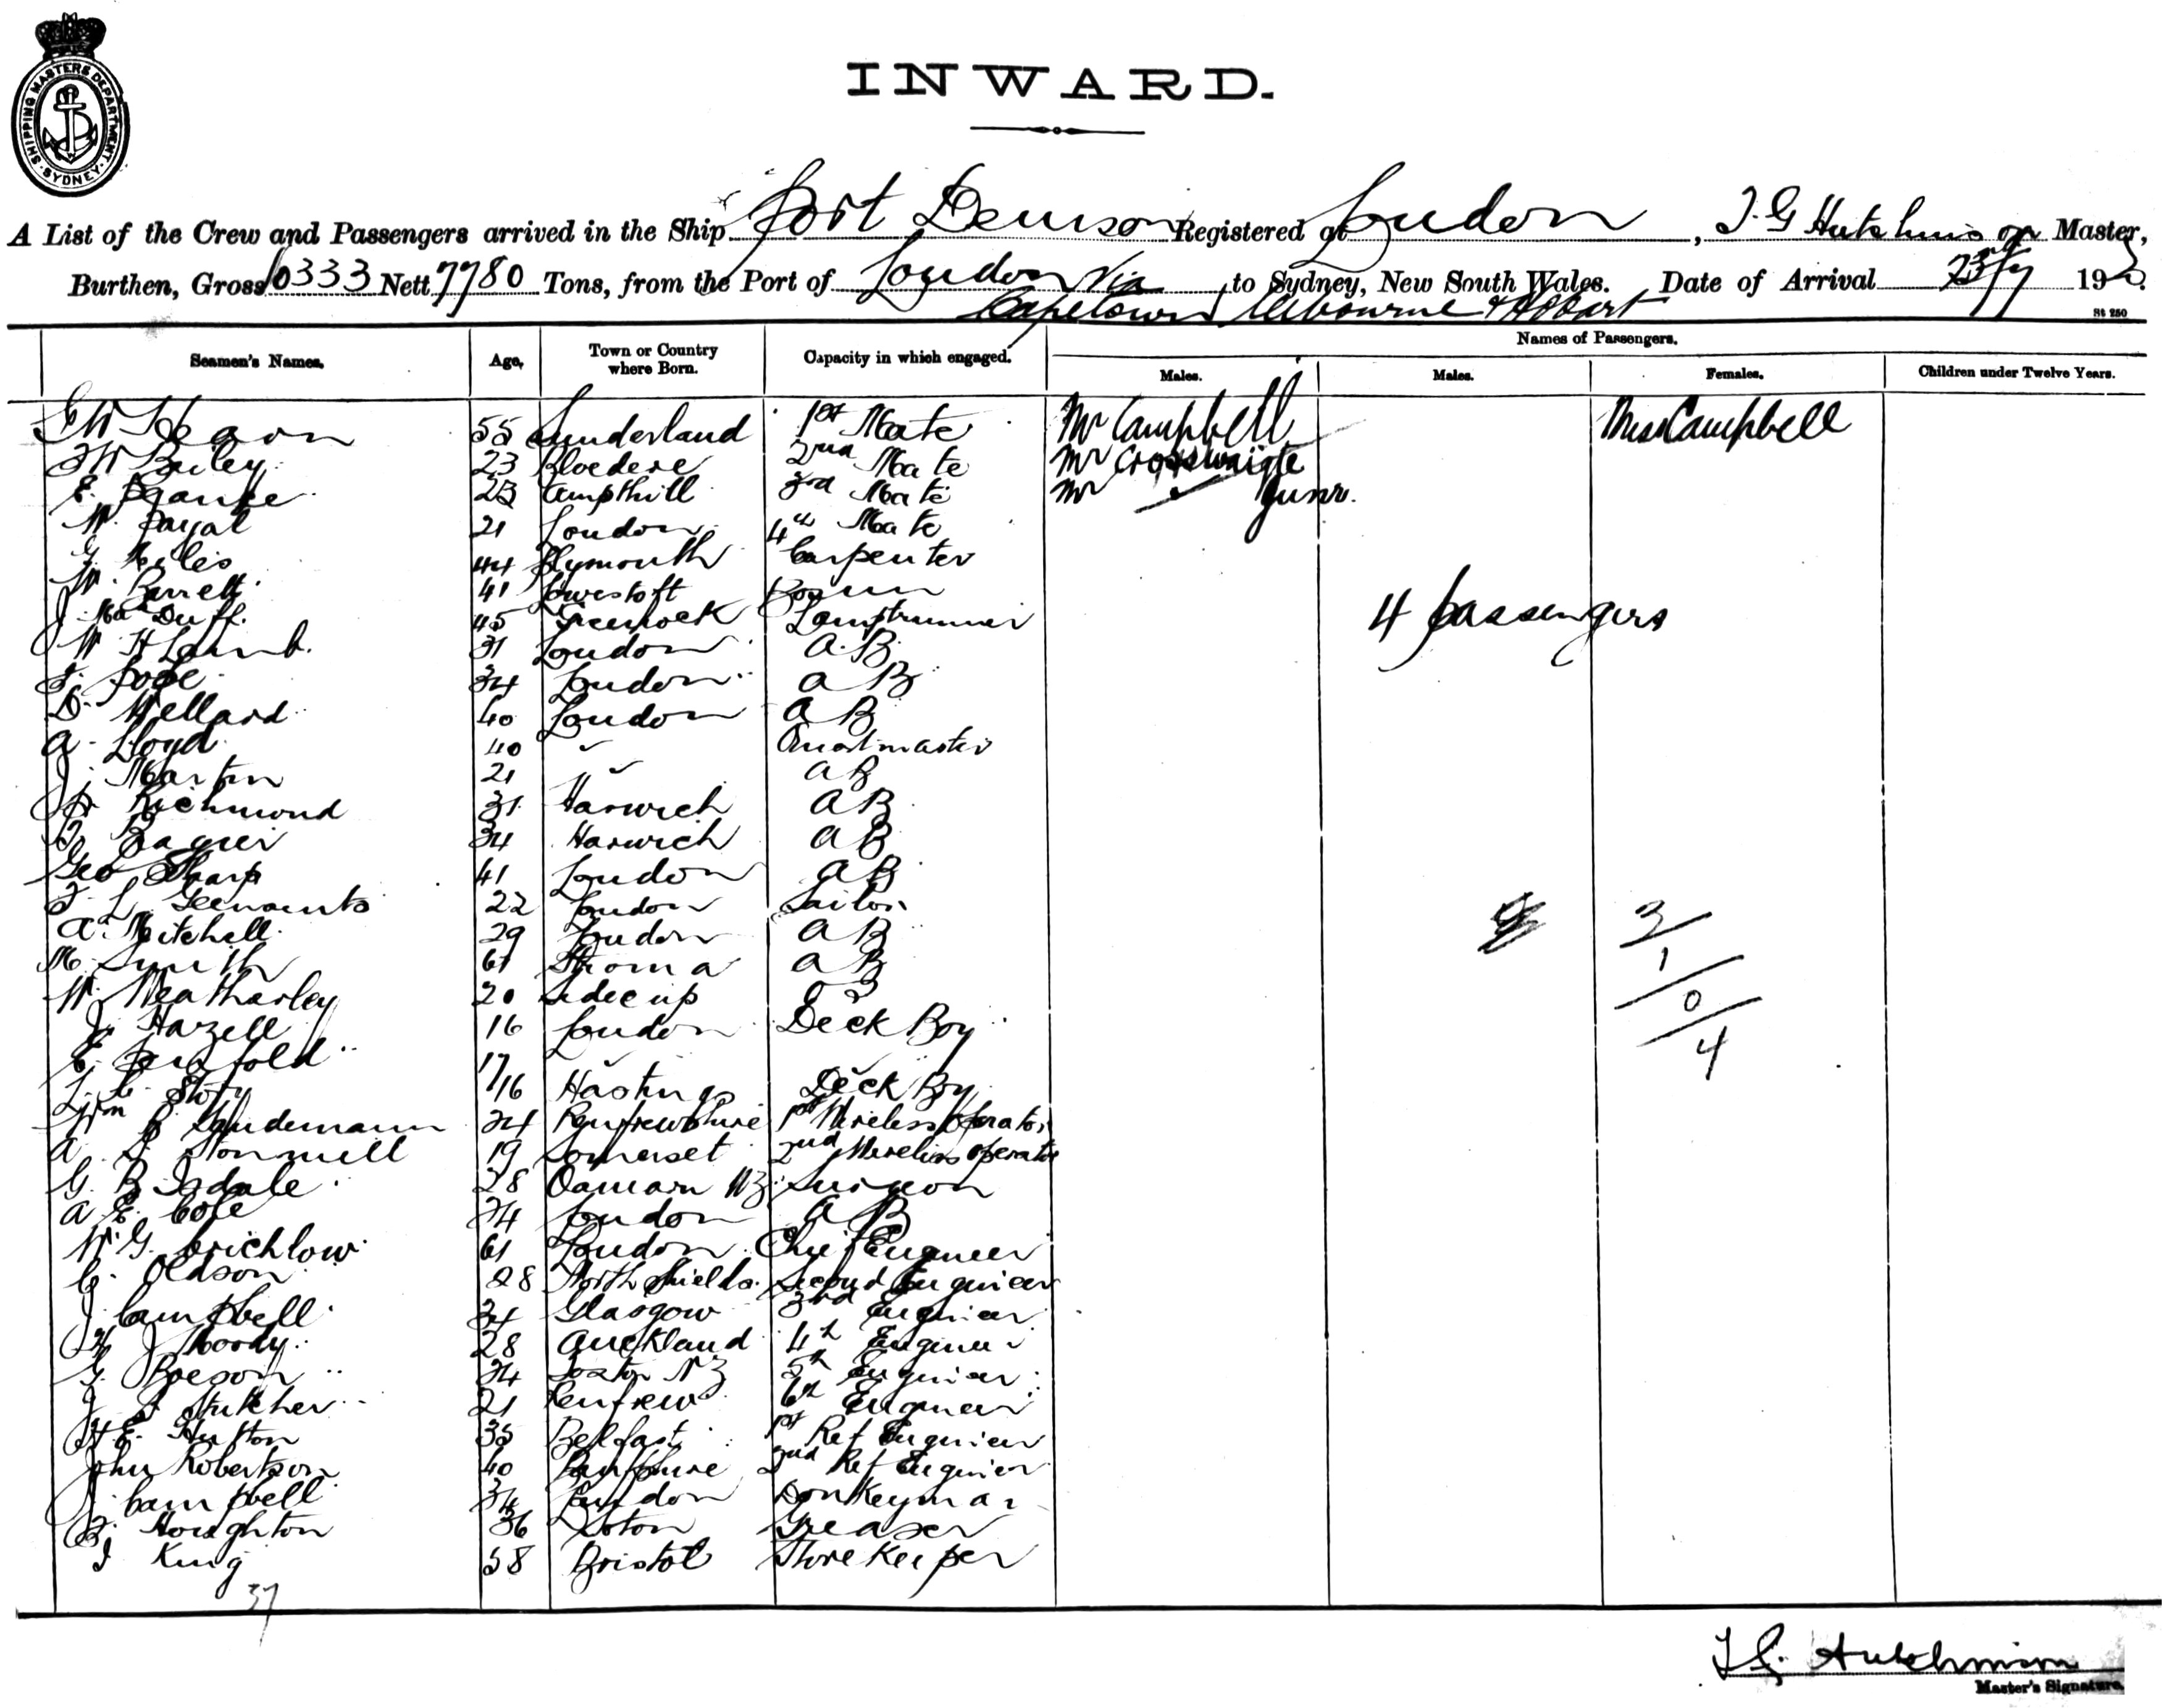 SHIPPING MASTERS DEPARTMENT. SYDNEY
INWARD.
A List of the Crew and Passengers arrived in the Ship Port Denison Registered at London, T. G Hutchinson Master,
Burthen, Gross 10333 Nett 7780 Tons, from the Port of London Via to Sydney, New South Wales. Date of Arrival 23/7 192
Capetown Melbourne & Hobart
St 250
Seamen's Names. Age. Town or Country where Born. Capacity in which engaged. Names of Passengers.
Males. Males. Females. Children under Twelve Years.
55 Sunderland 1st Mate Mr Campbell Miss Campbell
23 2nd Mate Mr Crosswaigte
E. 23 Ampthill 3rd Mate Mr " Junr.
W. 21 London 4th Mate
G Miles 44 Plymouth Carpenter
W. Barrett 41 Lowestoft Bosun
J. MacDuff. 45 Greenock Lamptrimmer
W H Lamb. 31 London A.B
4 passengers
Pope 34 London A B
D. Wellard 40 London A B
A. Lloyd 40 " Quartmaster
J. Martin 21 " A B
Richmond 31 Harwich A B
34 Harwich A B
Geo Sharp 41 London A B
22 London Sailor
A. Mitchell 29 London A B
M. Smith 61 Stroma A B
W. Weatharley 20 Sidecup
J. Hazell 16 London Deck Boy
E. Penfold 17 "
16 Hastings Deck Boy
24 Renfrewshire 1st Wireless Operator
A. 19 Somerset 2nd Wireless Operator
G. 28 Oamaru NZ Surgeon
A E Cole 24 London A B
W. G. Crichlow 61 London Chief Engineer
C. Oldson 28 North Shields Second Engineer
J Campbell 34 Glasgow 3rd Engineer
H J Moody 28 Auckland 4th Engineer
24 NZ 5th Engineer
J 21 Renfrew 6th Engineer
H. E. Hutton 35 Belfast 1st Ref Engineer
John Robertson 40 Banffshire 2nd Ref Engineer
J Campbell 34 London Donkeyman
Houghton 36 Greaser
J King 58 Bristol Store Keeper
37
3/
1/
0/
4
T G. Hutchinson
Master's Signature.